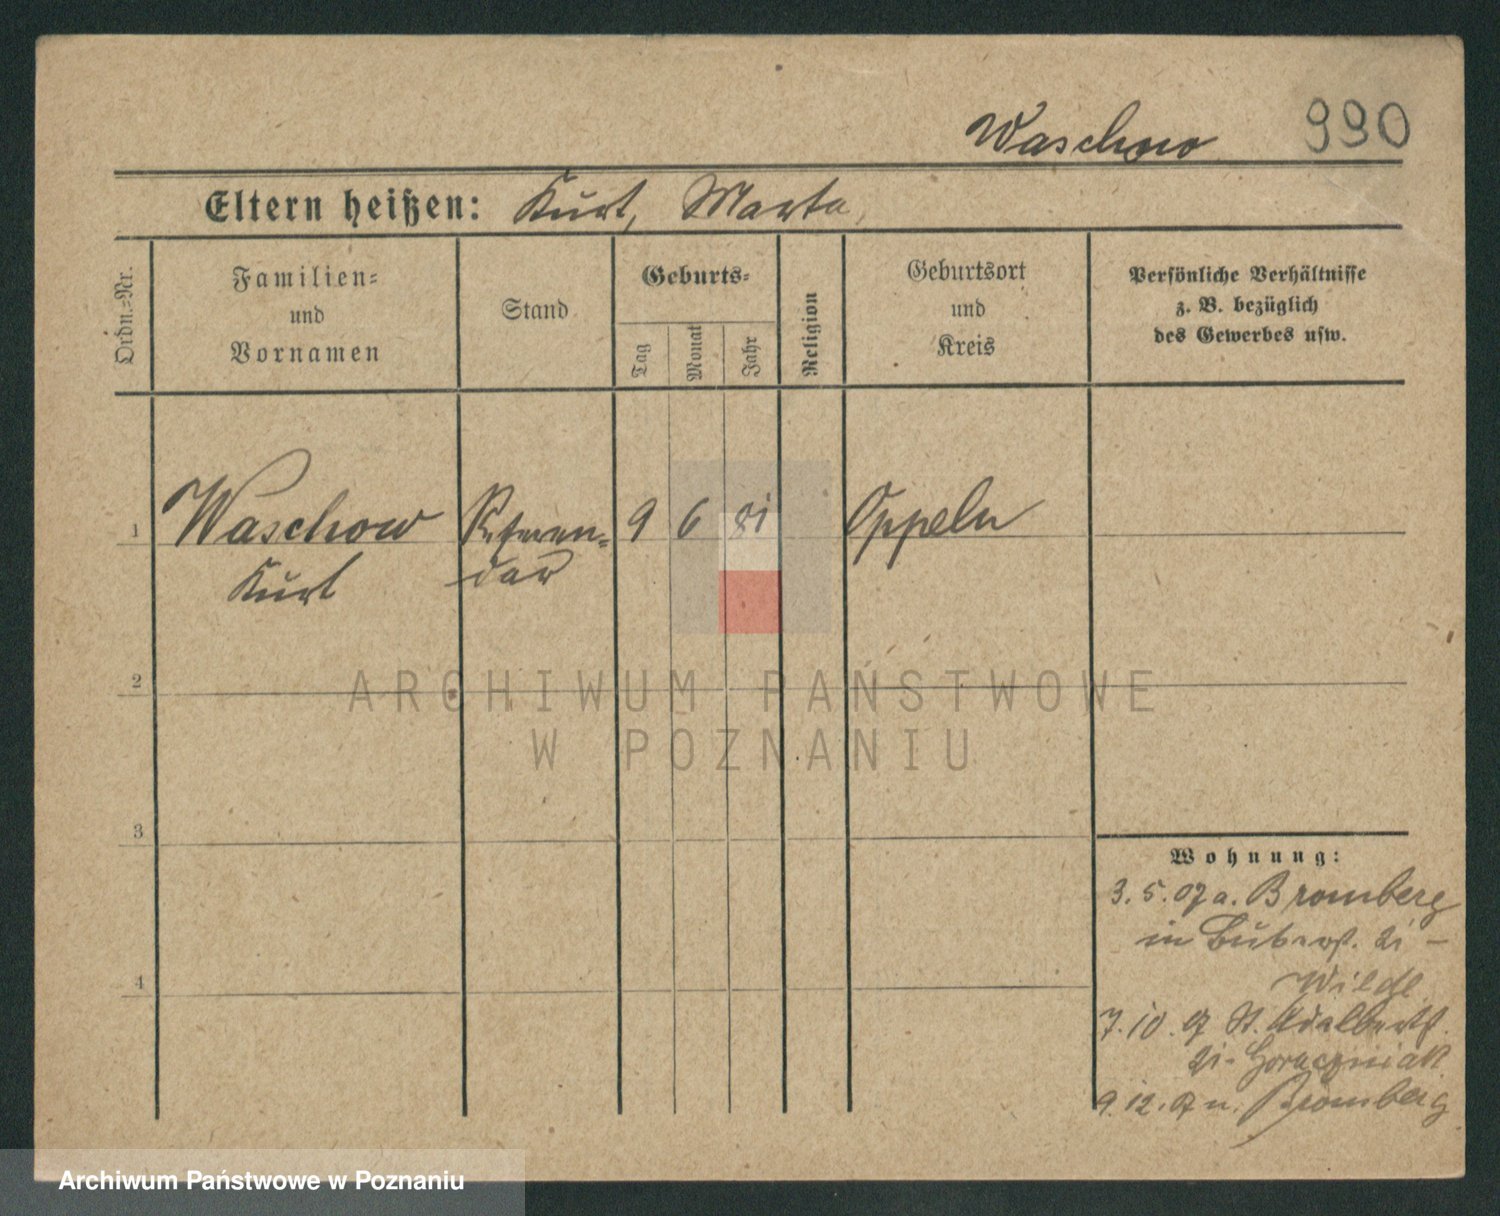 Waschow 990
Eltern heißen: Kurt, Marta,
Ordn.-Nr.
Familien-
und
Vornamen
Stand
Geburts-
Tag
Monat
Jahr
Religion
Geburtsort
und
Kreis
Persönliche Verhältnisse
z. B. bezüglich
des Gewerbes usw.
1 Waschow Referen- 9 6 81 Oppeln
Kurt dar
2
3
4
Wohnung:
3. 5. 07 a. Bromberg
in 21 -
Wilde
7. 10. 07 St. Adalbertst.
21 - Goraczniak
9. 12. 07 n. Bromberg
ARCHIWUM PAŃSTWOWE
W POZNANIU
Archiwum Państwowe w Poznaniu